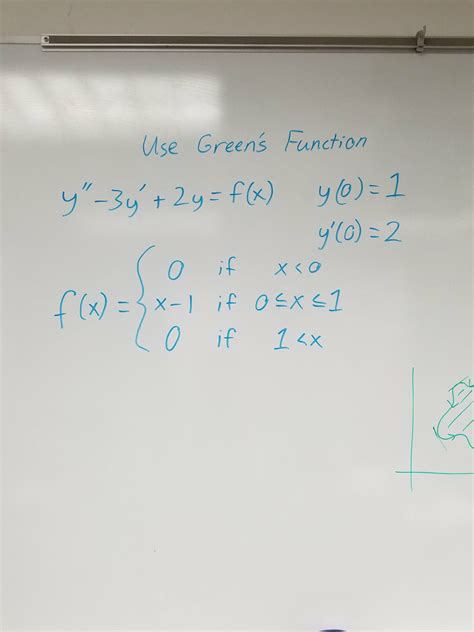 Use Green's Function
y" -3y' + 2y = f(x) y(0) = 1
y'(0) = 2
0 if x<0
f(x) = { x-1 if 0≤x≤1
0 if 1<x